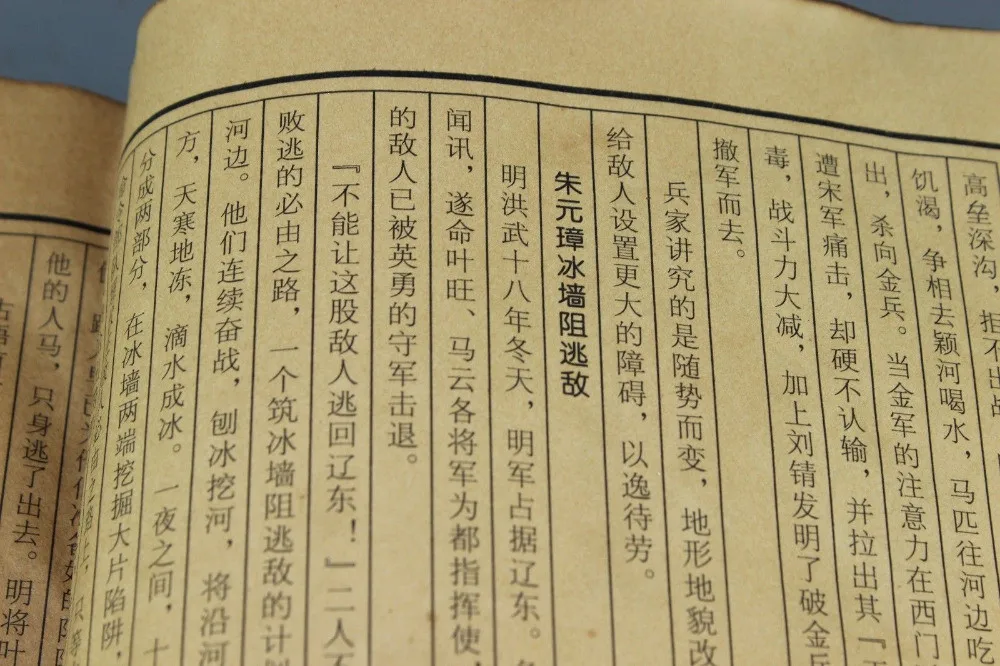 高垒深沟，拒不出战
饥渴，争相去颍河喝水，马匹往河边吃
出，杀向金兵。当金军的注意力在西门
遭宋军痛击，却硬不认输，并拉出其『
毒，战斗力大减，加上刘锜发明了破金兵
撤军而去。
兵家讲究的是随势而变，地形地貌改
给敌人设置更大的障碍，以逸待劳。
朱元璋冰墙阻逃敌
明洪武十八年冬天，明军占据辽东。
闻讯，遂命叶旺、马云各将军为都指挥使，
的敌人已被英勇的守军击退。
『不能让这股敌人逃回辽东！』二人不
败逃的必由之路，一个筑冰墙阻逃敌的计划
河边。他们连续奋战，刨冰挖河，将沿河
方，天寒地冻，滴水成冰。一夜之间，十
分成两部分，在冰墙两端挖掘大片陷阱，
他的人马，只身逃了出去。明将叶
古语